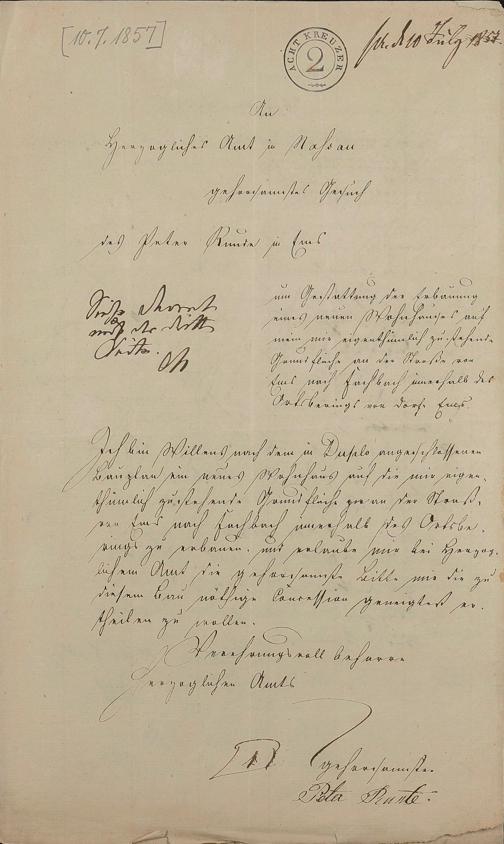 [10.7.1857]
ACHT KREUZER
2
10 July 1857
An
Herzogliches Amt in Nassau
gehorsamstes Gesuch
des Peter in Ems
um Gestattung der Erbauung
eines neuen Wohnhauses auf
eigenthümlich zustehende
Grundfläche an der Straße von
Ems nach Fachbach innerhalb des
Ortsberings von Dorf Ems
Ich bin Willens nach dem in angeschlossenen
Bauplan ein neues Wohnhaus auf die mir eigen-
thümlich zustehende Grundfläche an der Straße
von Ems nach Fachbach innerhalb des Ortsbe-
rings zu erbauen und erlaube mir bei Herzog-
lichem Amt die gehorsamste Bitte mir die zu
diesem Bau nöthige Concession geneigtest er-
theilen zu wollen.
Verehrungsvoll beharre
Herzoglichen Amts
gehorsamster
Peter